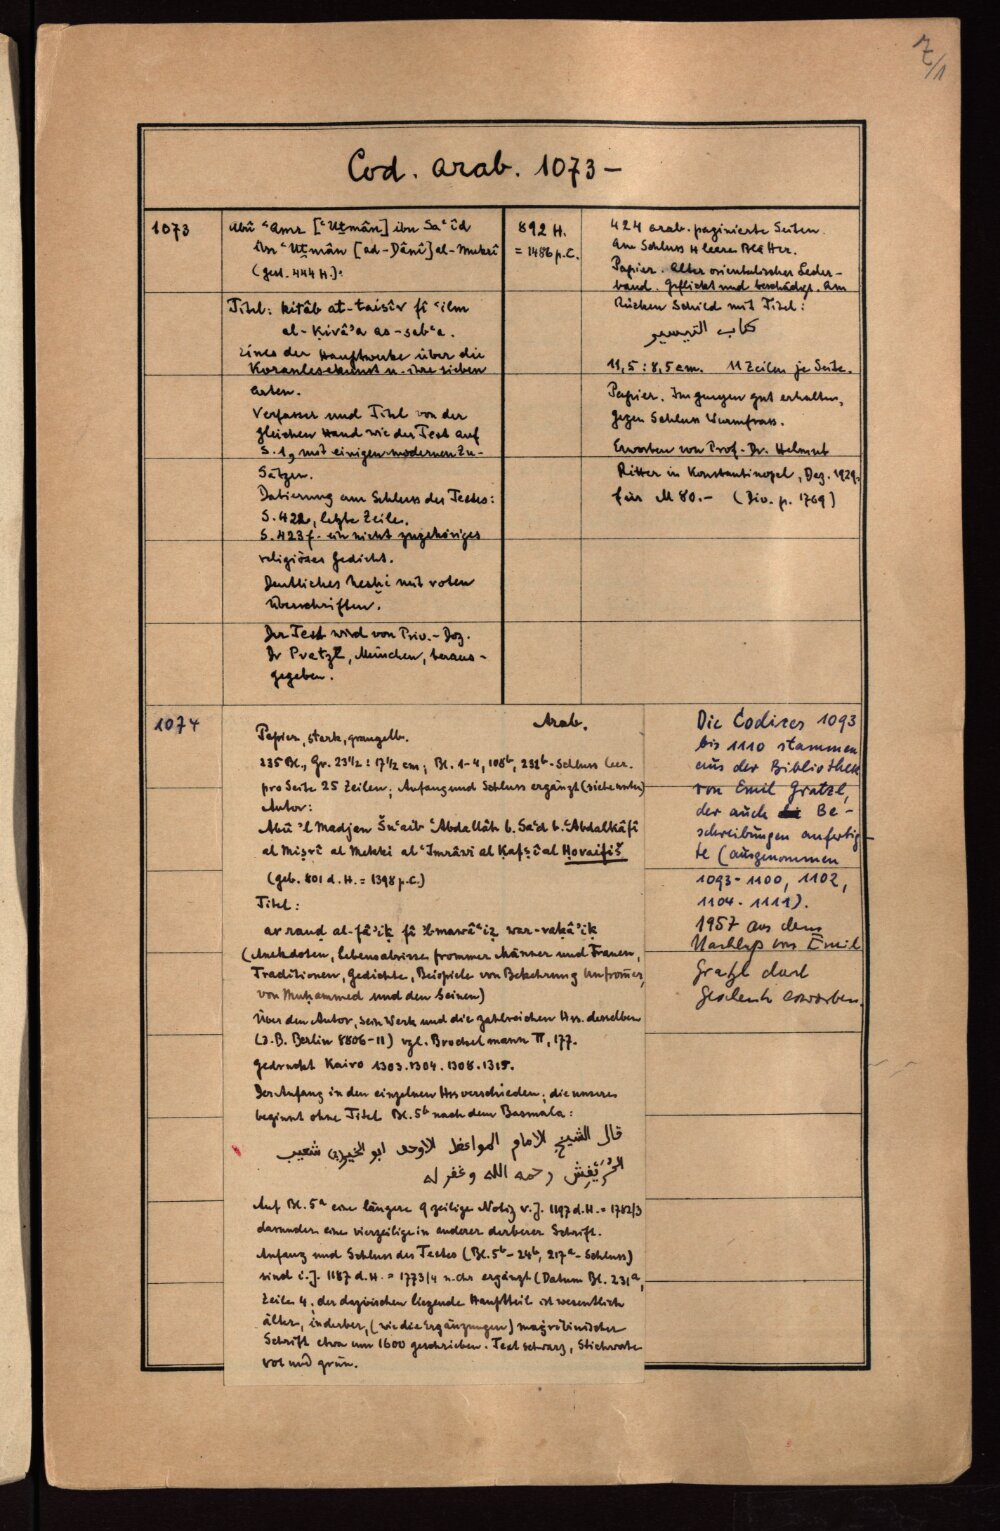 7/1
Cod. arab. 1073 –
1073
Abû ʿAmr [ʿUṯmân] ibn Saʿîd
ibn ʿUṯmân [ad-Dânî] al-Muḳrî
(gest. 444 H.):
Titel: kitâb at-taisîr fî ʿilm
al-ḳirâʾa as-sabʿa.
Eines der Hauptwerke über die
Koranlesekunst u. ihre sieben
Arten.
Verfasser und Titel von der
gleichen Hand wie der Text auf
S. 1, mit einigen modernen Zu-
sätzen.
Datierung am Schluss des Textes:
S. 422, letzte Zeile.
S. 423 f. ein nicht zugehöriges
religiöses Gedicht.
Deutliches Nesḫi mit roten
Überschriften.
Der Text wird von Priv.-Doz.
Dr Pretzl, München, heraus-
gegeben.
892 H.
= 1486 p.C.
424 arab. paginierte Seiten.
Am Schluss 4 leere Blätter.
Papier. Alter orientalischer Leder-
band. Geflickt und beschädigt. Am
Rücken Schild mit Titel:
كتاب التيسير
11,5 : 8,5 cm. 11 Zeilen je Seite.
Papier. Im ganzen gut erhalten,
gegen Schluss Wurmfrass.
Erworben von Prof. Dr. Helmut
Ritter in Konstantinopel, Dez. 1929.
für M 80.– (Div. p. 1769)
1074
Arab.
Papier, stark, graugelb.
235 Bl., Gr. 23 1/2 : 17 1/2 cm; Bl. 1-4, 108b, 232b-Schluss leer.
pro Seite 25 Zeilen; Anfang und Schluss ergänzt (siehe unten)
Autor:
Abû ʾl Madjan Šuʿaib ʿAbdallâh b. Saʿd b. ʿAbdalkâfî
al Miṣrî al Mekki al ʿImrâwi al Ḳafṣî al Ḥoraifîš
(geb. 801 d. H. = 1398 p.C.)
Titel:
ar rauḍ al-fâʾiḳ fî ʾlmawâʿiẓ war-raḳâʾiḳ
(Anekdoten, Lebensabrisse frommer Männer und Frauen,
Traditionen, Gedichte, Beispiele von Bekehrung Unfrom̅er,
von Muḥammed und den Seinen)
Über den Autor, sein Werk und die zahlreichen Hss. desselben
(z.B. Berlin 8806-11) vgl. Brockelmann II, 177.
Gedruckt Kairo 1303. 1304. 1308. 1315.
Der Anfang in den einzelnen Hss verschieden; die unsere
beginnt ohne Titel Bl. 5b nach dem Basmala:
قال الشيخ الامام المواعظ الاوحد ابو الخير شعيب
الحُرَيْفِش رحمه الله وغفر له
Auf Bl. 5a eine längere 9 zeilige Notiz v. J. 1197 d.H. = 1782/3
darunter eine vierzeilige in anderer derberer Schrift.
Anfang und Schluss des Textes (Bl. 5b – 24b, 217a – Schluss)
sind i. J. 1187 d.H. = 1773/4 n. Chr ergänzt (Datum Bl. 231a,
Zeile 4; der dazwischen liegende Hauptteil ist wesentlich
älter, in derber, (wie die Ergänzungen) maġrebinischer
Schrift etwa um 1600 geschrieben. Text schwarz, Stichworte
rot und grün.
Die Codices 1093
bis 1110 stammen
aus der Bibliothek
von Emil Gratzl,
der auch Be-
schreibungen anfertig-
te (ausgenommen
1093 - 1100, 1102,
1104 - 1111).
1957 aus dem
Nachlass von Emil
Gratzl durch
Geschenk erworben.